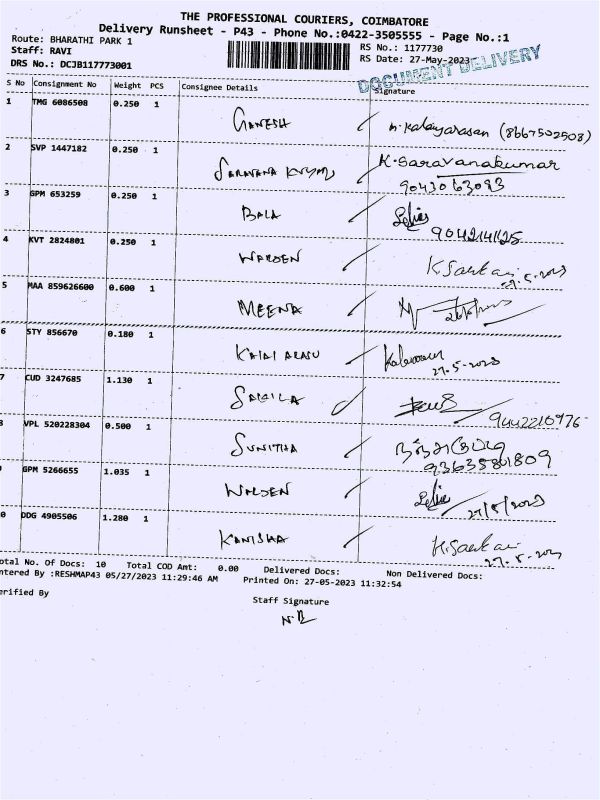 THE PROFESSIONAL COURIERS, COIMBATORE
Delivery Runsheet - P43 - Phone No.:0422-3505555 - Page No.:1
Route: BHARATHI PARK 1
Staff: RAVI
DRS No.: DCJB117773001
RS No.: 1177730
RS Date: 27-May-2023
DOCUMENT DELIVERY
S No Consignment No Weight PCS Consignee Details Signature
1 TMG 6086508 0.250 1 GANESH n. Kalaiyarasan (8667502508)
2 SVP 1447182 0.250 1 SARAVANA KUMAR K. Saravanakumar
9043063093
3 GPM 653259 0.250 1 BALA
9042141125
4 KVT 2824801 0.250 1 WARDEN K Sankari
27.5.2023
5 MAA 859626600 0.600 1 MEENA
6 STY 856670 0.180 1 KALAI ARASU
27-5-2023
7 CUD 3247685 1.130 1 SAKILA
9442210976
8 VPL 520228304 0.500 1 SUNITHA
93635801809
9 GPM 5266655 1.035 1 WARDEN
27/5/2023
10 DDG 4905506 1.280 1 KANISHA K. Sankari
27.5.2023
Total No. Of Docs: 10 Total COD Amt: 0.00 Delivered Docs: Non Delivered Docs:
Entered By :RESHMAP43 05/27/2023 11:29:46 AM Printed On: 27-05-2023 11:32:54
Verified By
Staff Signature